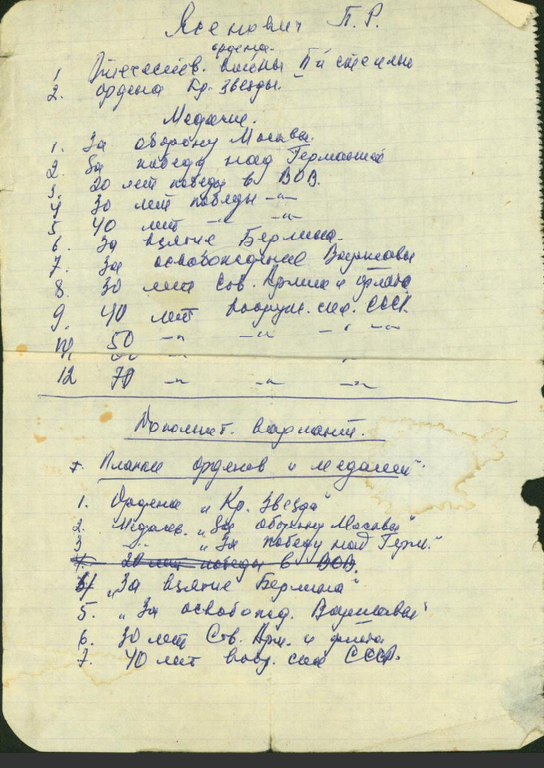 Ясенович П. Р.
ордена.
1. Отечествев. войны II й степени
2. ордена Кр. звезды.
Медали.
1. За оборону Москвы.
2. За победу над Германией
3. 20 лет победы в ВОВ.
4 30 лет победы -"-
5 40 лет -"- -"-
6. За взятие Берлина.
7. За освобождение Варшавы
8. 30 лет Сов. Армии и флота
9. 40 лет вооруж. сил. СССР.
50 -"- -"- -"- -"-
12 70 -"- -"- -"-
Дополнит. вариант.
Планки орденов и медалей.
1. Ордена „Кр. Звезда"
2. Медалев. „За оборону Москвы"
3 -"- „За победу над Герм."
4. 20 лет победы в ВОВ.
4) „За взятие Берлина"
5. „За освобожд. Варшавы"
6. 30 лет Сов. Арм. и флота
7. 40 лет воор. сил СССР.